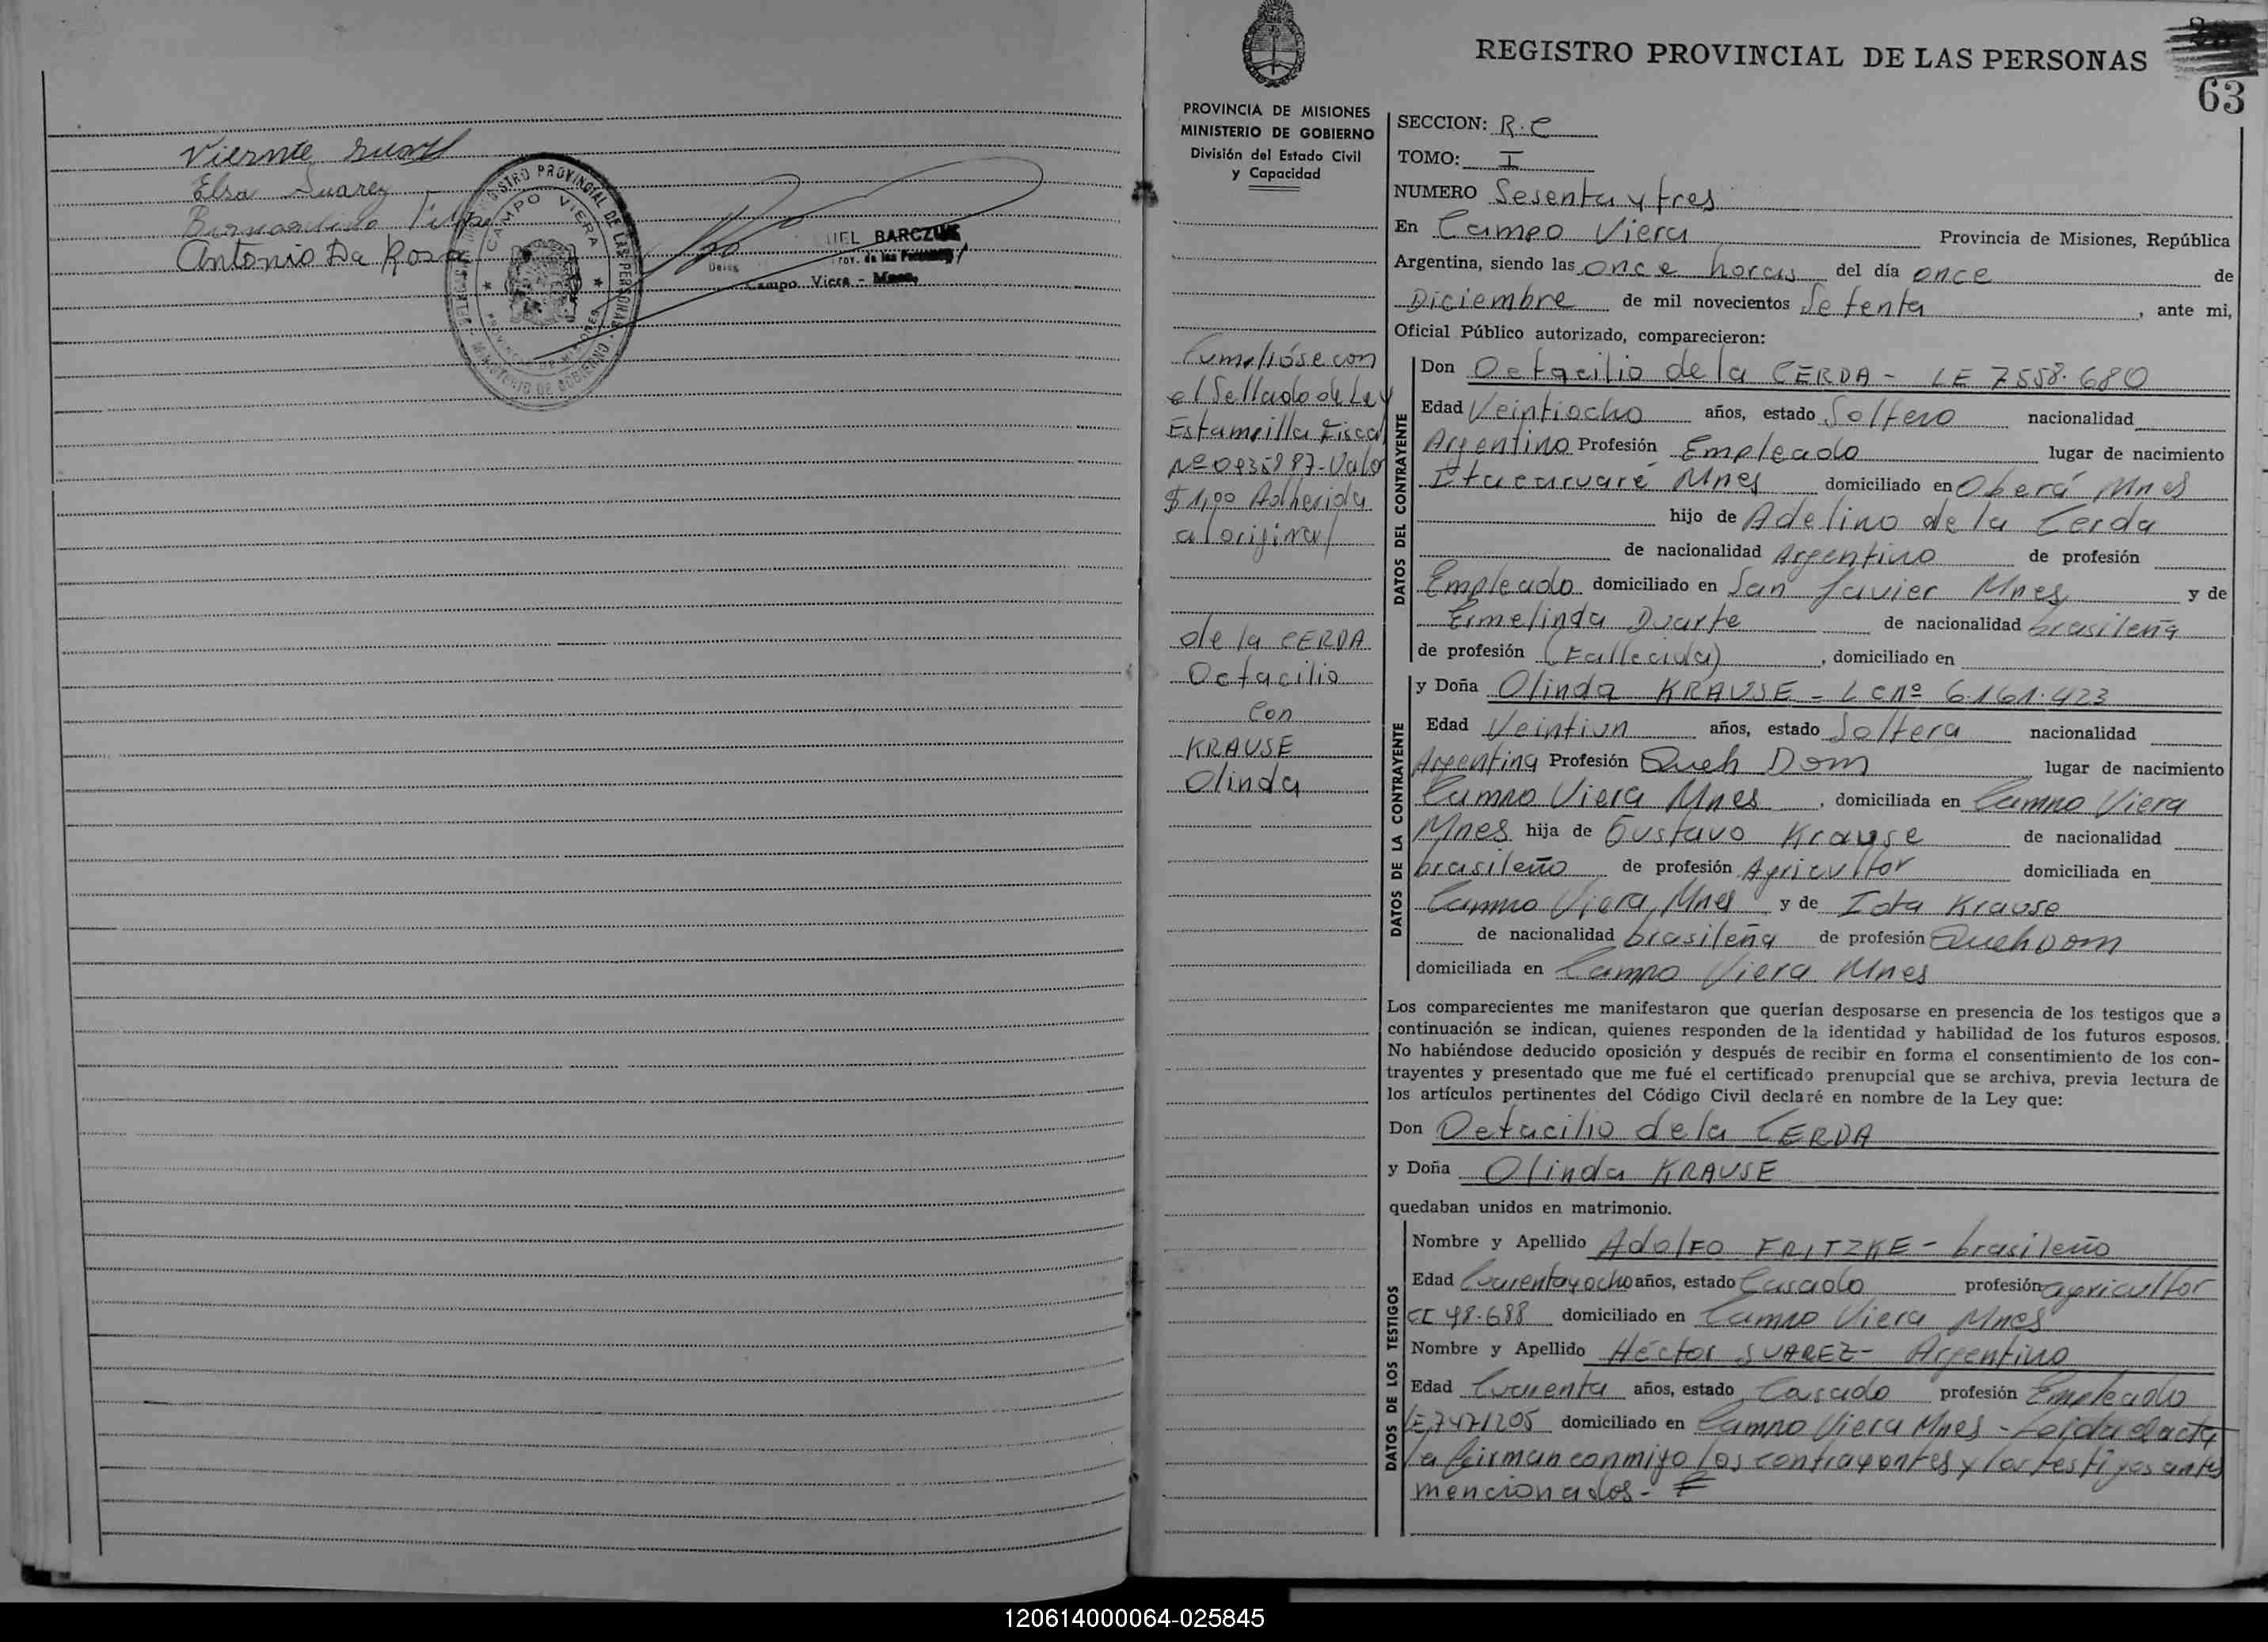 Elsa Suarez
Antonio Da Rosa
CAMPO VIERA
BARCZUK
Campo Viera - Mnes.
REGISTRO PROVINCIAL DE LAS PERSONAS
63
PROVINCIA DE MISIONES
MINISTERIO DE GOBIERNO
División del Estado Civil
y Capacidad
Cumplióse con
el Sellado de Ley
Estampilla Fiscal
Valor
$ 1,00 Adherida
al original
de la CERDA
Octacilio
Con
KRAUSE
Olinda
SECCION: R.C
TOMO: I
NUMERO Sesenta y tres
En Campo Viera Provincia de Misiones, República
Argentina, siendo las once horas del día once de
Diciembre de mil novecientos Setenta, ante mi,
Oficial Público autorizado, comparecieron:
DATOS DEL CONTRAYENTE
Don Octacilio de la CERDA - LE 7558.680
Edad Veintiocho años, estado Soltero nacionalidad
Argentino Profesión Empleado lugar de nacimiento
Itacaruaré Mnes domiciliado en Oberá Mnes
hijo de Adelino de la Cerda
de nacionalidad Argentino de profesión
Empleado domiciliado en San Javier Mnes y de
Ermelinda Duarte de nacionalidad brasileña
de profesión (Fallecida), domiciliado en
DATOS DE LA CONTRAYENTE
y Doña Olinda KRAUSE - LC nº 6.161.423
Edad Veintiun años, estado Soltera nacionalidad
Argentina Profesión Queh Dom lugar de nacimiento
Campo Viera Mnes, domiciliada en Campo Viera
Mnes hija de Gustavo Krause de nacionalidad
brasileño de profesión Agricultor domiciliada en
Campo Viera Mnes y de Krause
de nacionalidad brasileña de profesión Queh Dom
domiciliada en Campo Viera Mnes
Los comparecientes me manifestaron que querían desposarse en presencia de los testigos que a
continuación se indican, quienes responden de la identidad y habilidad de los futuros esposos.
No habiéndose deducido oposición y después de recibir en forma el consentimiento de los con-
trayentes y presentado que me fué el certificado prenupcial que se archiva, previa lectura de
los artículos pertinentes del Código Civil declaré en nombre de la Ley que:
Don Octacilio de la CERDA
y Doña Olinda KRAUSE
quedaban unidos en matrimonio.
DATOS DE LOS TESTIGOS
Nombre y Apellido Adolfo FRITZKE - brasileño
Edad Cuarenta y ocho años, estado Casado profesión agricultor
CI 98.688 domiciliado en Campo Viera Mnes
Nombre y Apellido Héctor SUAREZ - Argentino
Edad Cuarenta años, estado Casado profesión Empleado
LE 7471205 domiciliado en Campo Viera Mnes - Leida el acta
la firman conmigo los contrayentes y los testigos antes
mencionados.-
120614000064-025845